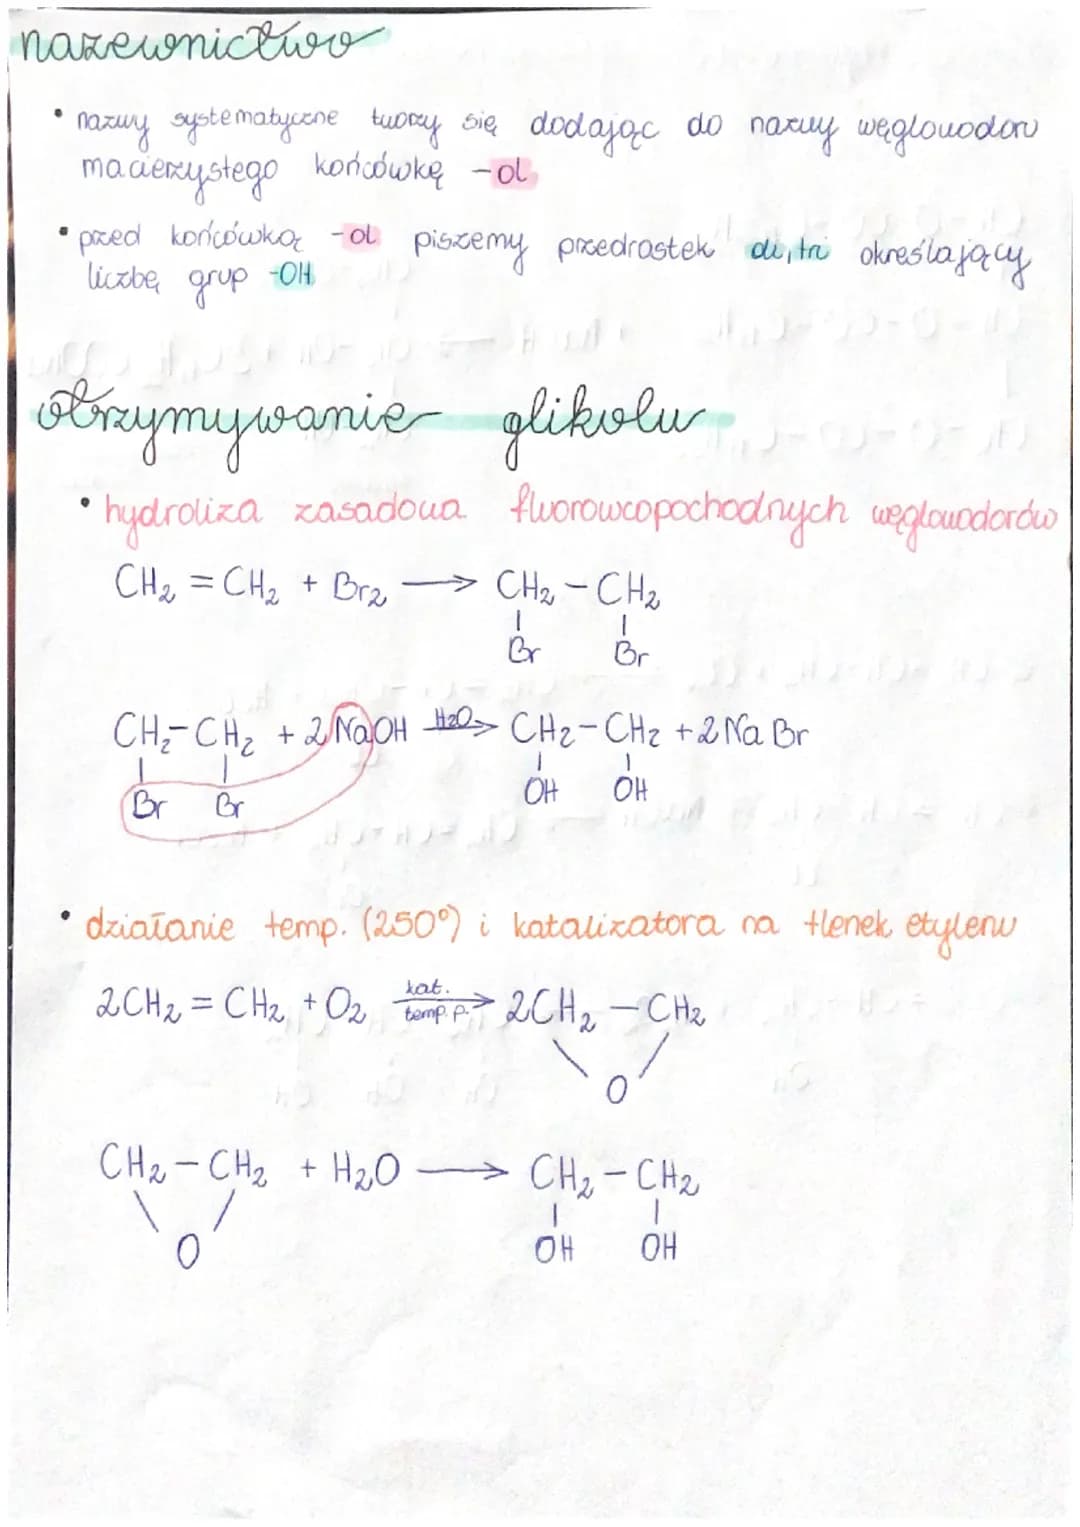 nazewnictwo
• nazwy systematyczne tworzy się dodając do nazwy węglowodoru
macierzystego końcówkę -ol
• przed końcówką -ol piszemy przedrostek di, tri określający
liczbę grup -OH
otrzymywanie glikolu
• hydroliza zasadowa fluorowcopochodnych węglowodorów
CH₂ = CH₂ + Br₂ ⟶ CH₂ - CH₂
| |
Br Br
CH₂-CH₂ + 2NaOH H₂O⟶ CH₂-CH₂ + 2NaBr
| | | |
Br Br OH OH
• działanie temp. (250°) i katalizatora na tlenek etylenu
2CH₂ = CH₂ + O₂ kat. temp. p.⟶ 2CH₂ - CH₂
\ /
O
CH₂ - CH₂ + H₂O ⟶ CH₂ - CH₂
\ / | |
O OH OH